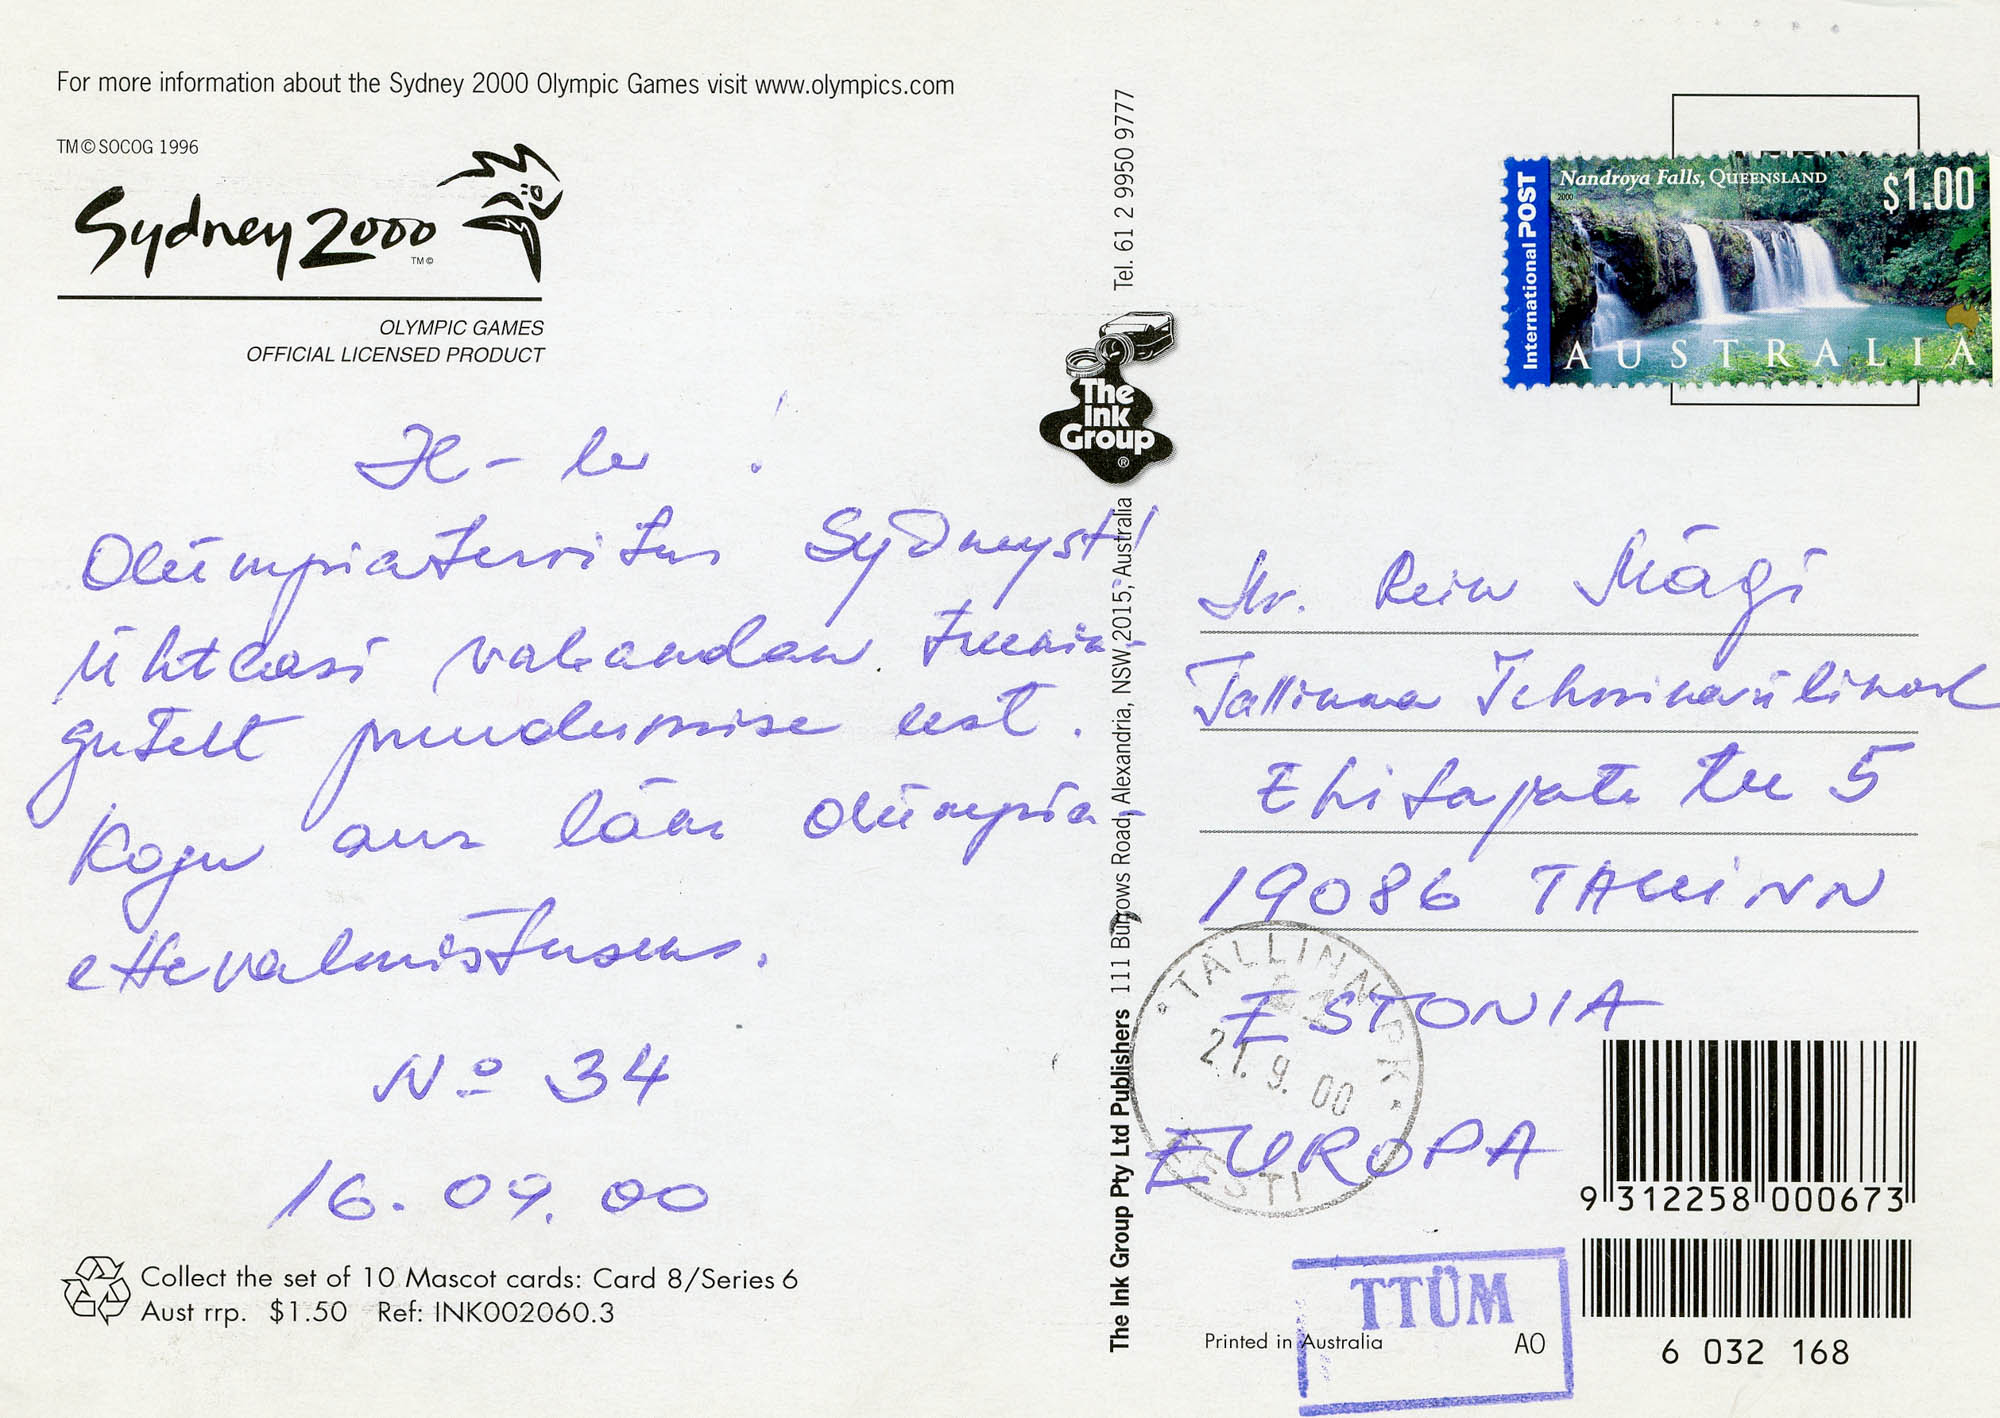 For more information about the Sydney 2000 Olympic Games visit www.olympics.com
TM © SOCOG 1996
Sydney 2000
TM ©
OLYMPIC GAMES
OFFICIAL LICENSED PRODUCT
!
Olümpiatervitus Sydneyst!
Ühtlasi vabandan treenin-
gutelt puudumise eest.
Kogu aur läks olümpia-
ettevalmistuseks.
No 34
16.09.00
Collect the set of 10 Mascot cards: Card 8/Series 6
Aust rrp. $1.50 Ref: INK002060.3
The Ink Group Pty Ltd Publishers 111 Burrows Road, Alexandria, NSW 2015, Australia
The
Ink
Group
®
Tel. 61 2 9950 9777
International POST
Nandroya Falls, QUEENSLAND
2000
$1.00
AUSTRALIA
Mr. Rein Mägi
Tallinna Tehnikaülikool
Ehitajate tee 5
19086 TALLINN
ESTONIA
EUROPA
TALLINN PK
21.9.00
EESTI
9 312258 000673
TTÜM
Printed in Australia
AO
6 032 168